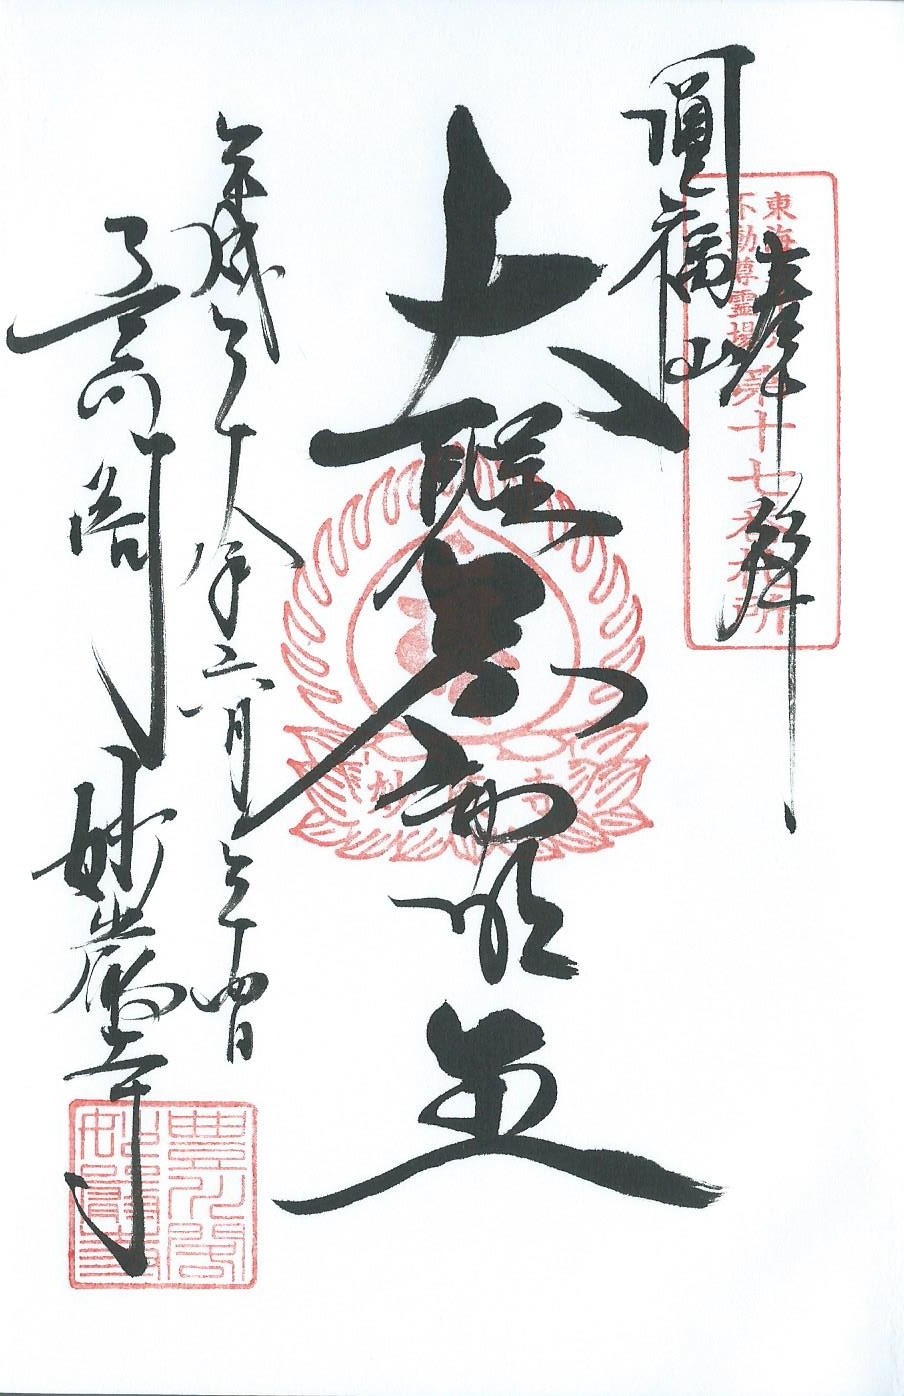 東海三十六
不動尊霊場第十七番札所
奉拝
圓福山
大聖明王
平成二十八年六月二十四日
豊川閣 妙嚴寺
豊川閣
妙嚴寺